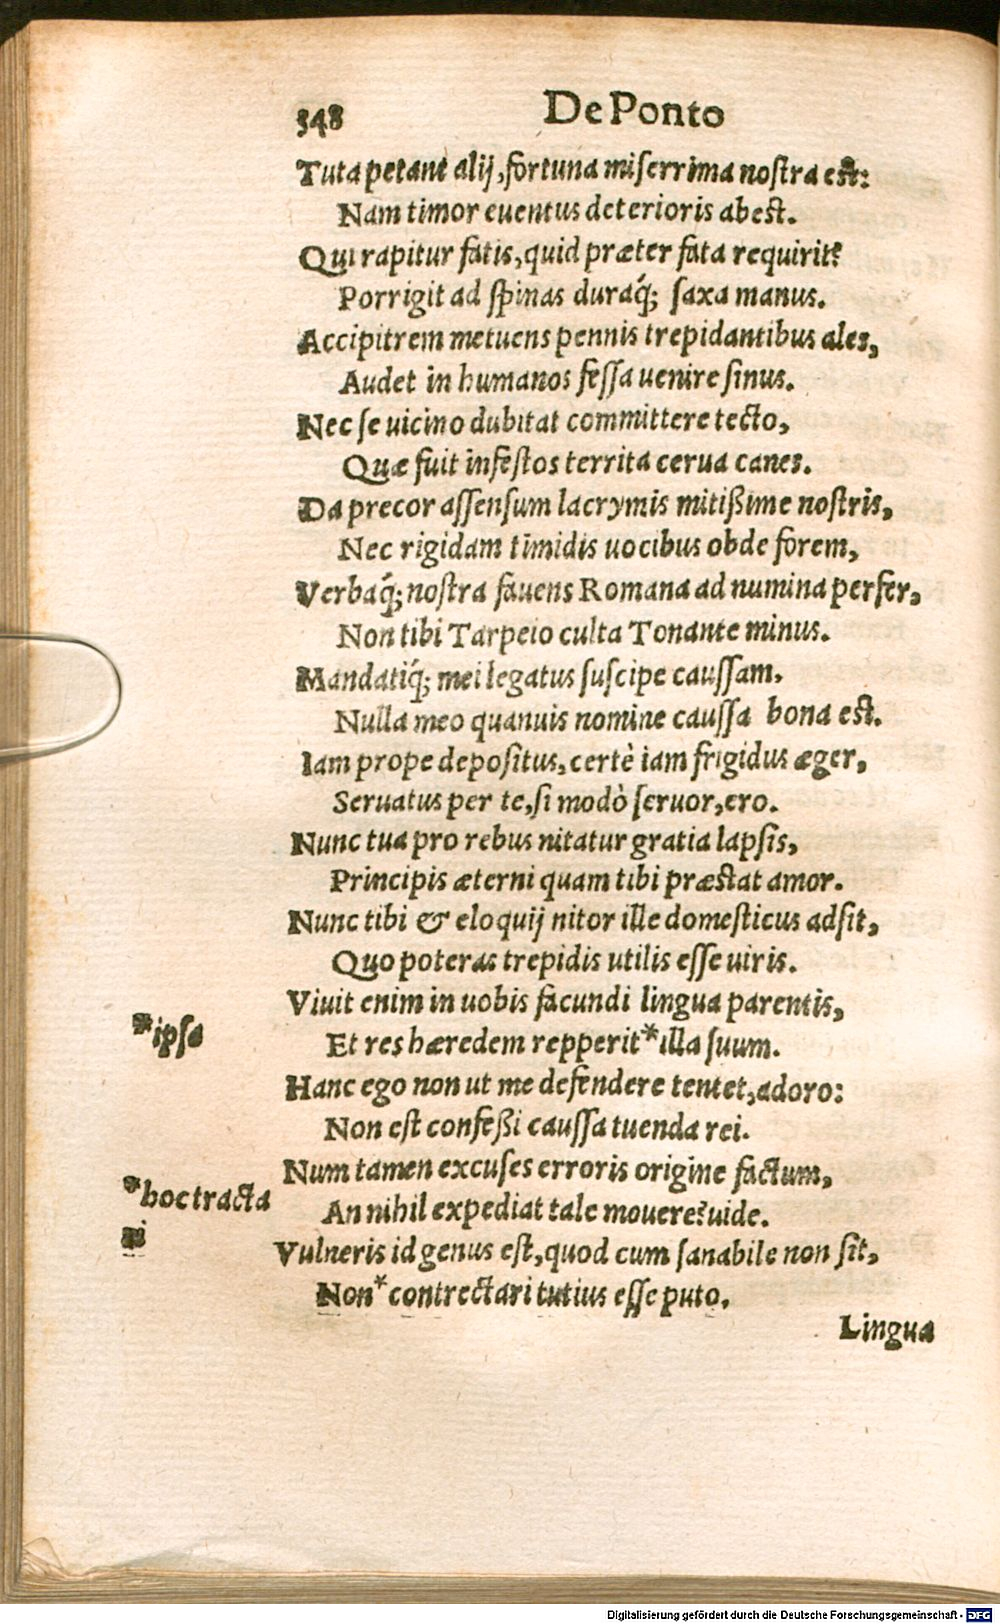 348 De Ponto
Tuta petant alij, fortuna miserrima nostra est:
Nam timor euentus deterioris abest.
Qui rapitur fatis, quid præter fata requirit?
Porrigit ad spinas duraq́; saxa manus.
Accipitrem metuens pennis trepidantibus ales,
Audet in humanos fessa uenire sinus.
Nec se uicino dubitat committere tecto,
Quæ fuit infestos territa cerua canes.
Da precor assensum lacrymis mitißime nostris,
Nec rigidam timidis uocibus obde forem,
Verbaq́; nostra fauens Romana ad numina perfer,
Non tibi Tarpeio culta Tonante minus.
Mandatiq́; mei legatus suscipe caussam.
Nulla meo quanuis nomine caussa bona est.
Iam prope depositus, certè iam frigidus æger,
Seruatus per te, si modò seruor, ero.
Nunc tua pro rebus nitatur gratia lapsis,
Principis æterni quam tibi præstat amor.
Nunc tibi & eloquij nitor ille domesticus adsit,
Quo poteras trepidis utilis esse uiris.
Viuit enim in uobis facundi lingua parentis,
*ipsa
Et res hæredem repperit *illa suum.
Hanc ego non ut me defendere tentet, adoro:
Non est confeßi caussa tuenda rei.
Num tamen excuses erroris origine factum,
*hoc tracta
An nihil expediat tale mouere? uide.
ri
Vulneris id genus est, quod cum sanabile non sit,
Non *contrectari tutius esse puto.
Lingua
Digitalisierung gefördert durch die Deutsche Forschungsgemeinschaft - DFG